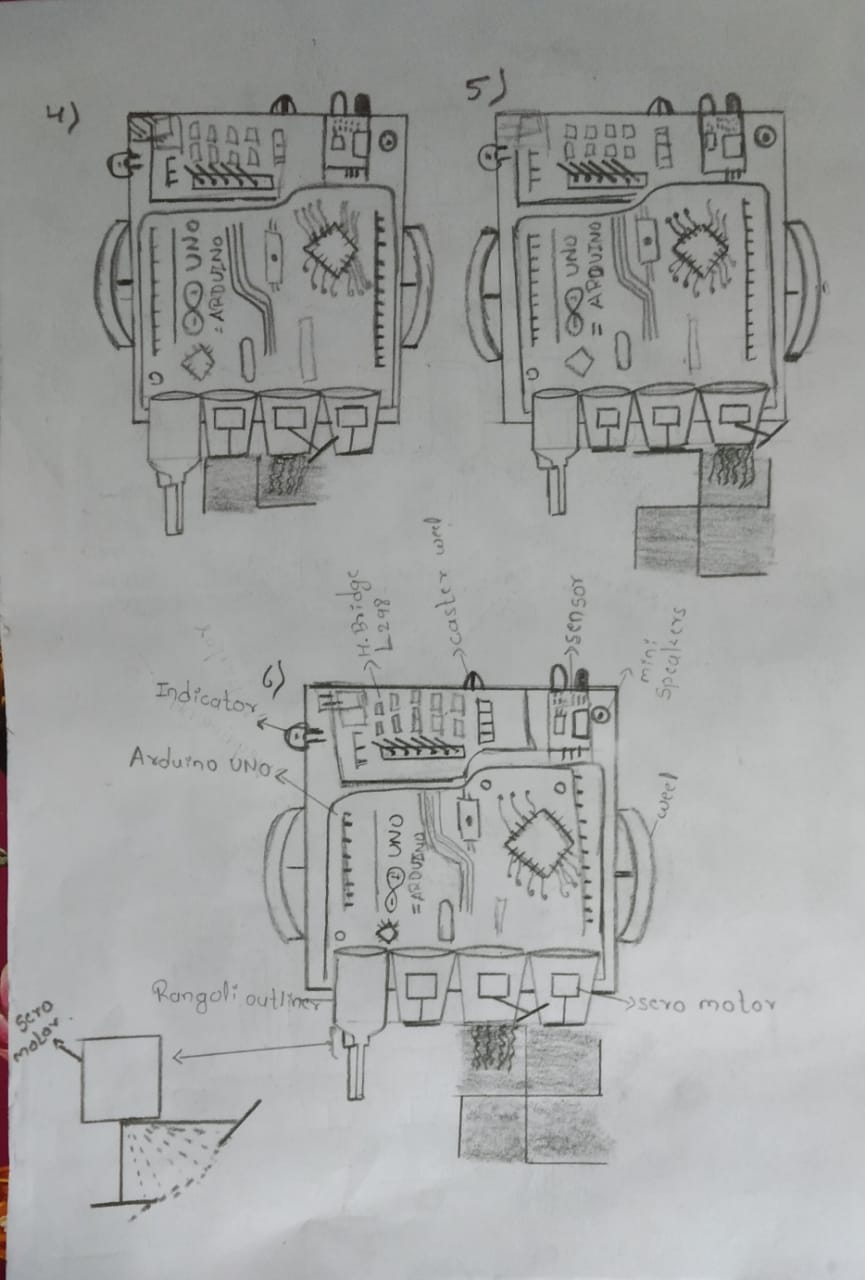 4)
5)
UNO
= ARDUINO
UNO
= ARDUINO
6)
H. Bridge
L298
caster weel
sensor
mini
speakers
Indicator
Arduino UNO
weel
UNO
= ARDUINO
Rangoli outliner
sero motor
sero
motor